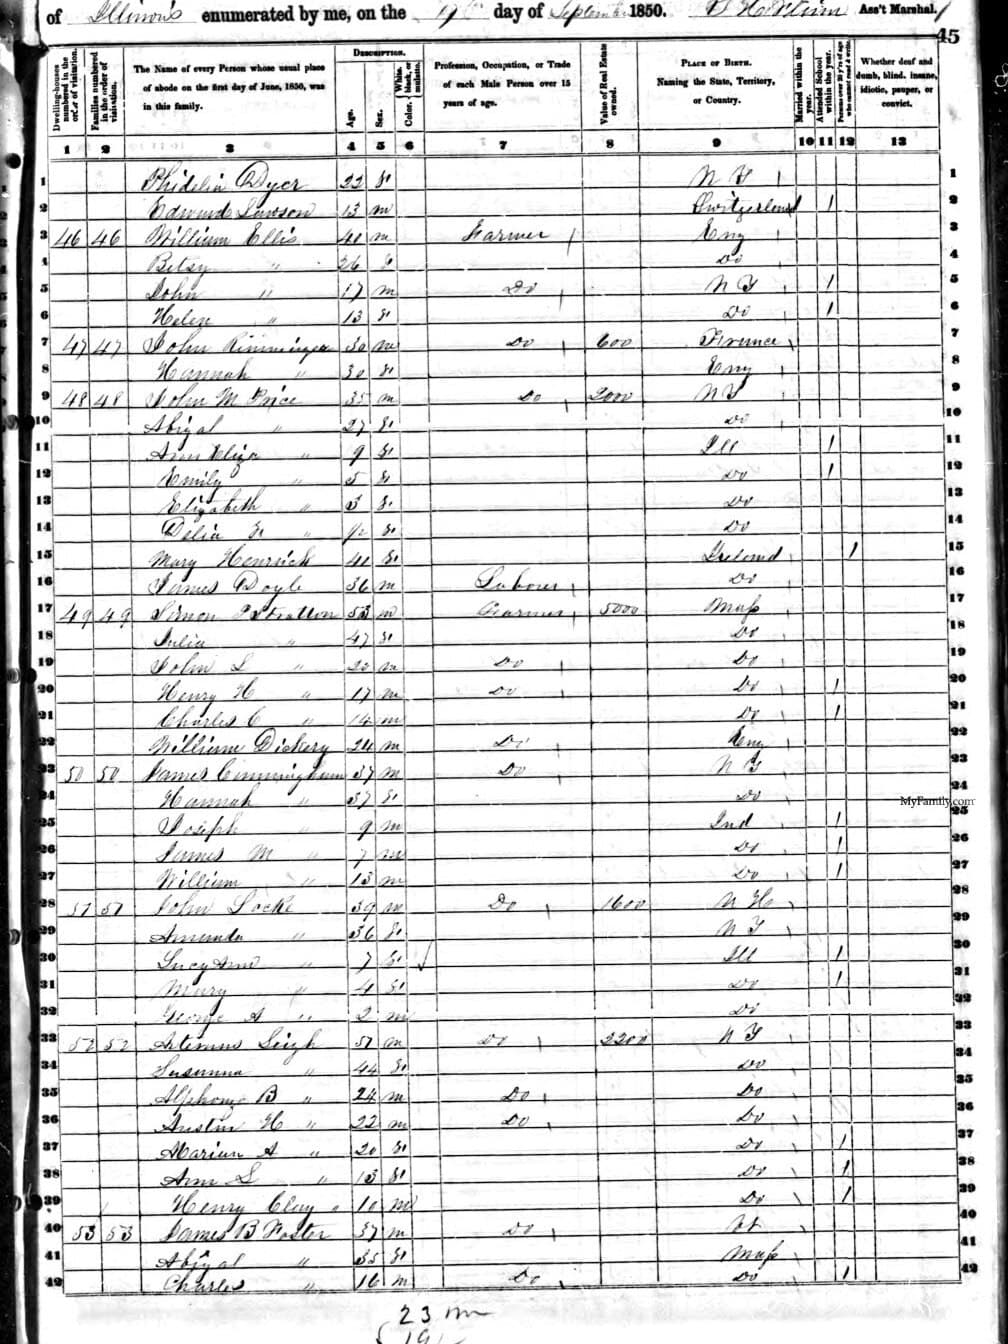 of Illinois enumerated by me, on the 19th day of September 1850. Ass't Marshal.
45
Dwelling-houses numbered in the order of visitation.
Families numbered in the order of visitation.
The Name of every Person whose usual place of abode on the first day of June, 1850, was in this family.
Description.
Age.
Sex.
Color, White, black, or mulatto.
Profession, Occupation, or Trade of each Male Person over 15 years of age.
Value of Real Estate owned.
Place of Birth. Naming the State, Territory, or Country.
Married within the year.
Attended School within the year.
Persons over 20 y'rs of age who cannot read & write.
Whether deaf and dumb, blind, insane, idiotic, pauper, or convict.
1 2 3 4 5 6 7 8 9 10 11 12 13
1 Phidelia Dyer 22 f N Y 1
2 Edward Lawson 13 m Switzerland 1 2
3 46 46 William Ellis 40 m Farmer Eng 3
4 Betsy " 26 f Do 4
5 John " 17 m Do N Y 1 5
6 Helen " 13 f Do 1 6
7 47 47 John 30 m Do 600 France 7
8 Hannah " 30 f Eng 8
9 48 48 John M Price 35 m Do 2000 N Y 9
10 Abigal " 27 f Do 10
11 Ann Eliza " 9 f Ill 1 11
12 Emily " 5 f Do 1 12
13 Elizabeth " 3 f Do 13
14 Delia " f Do 14
15 Mary 40 f Ireland 1 15
16 James Doyle 36 m Labourer Do 16
17 49 49 Simon Stratton 53 m Farmer 5000 Mass 17
18 Julia " 47 f Do 18
19 John L " 20 m Do Do 19
20 Henry H " 17 m Do Do 1 20
21 Charles C " 14 m Do 1 21
22 William Dickery 24 m Do Eng 22
23 50 50 James Cunningham 37 m Do 23
24 Hannah " 37 f Do 24
25 Joseph " 9 m Ind 1 25
26 James M " 7 m Do 1 26
27 William " 13 m Do 1 27
28 51 51 John Locke 39 m Do 1600 N H 28
29 Amanda " 36 f N Y 29
30 Lucy Ann " 7 f Ill 1 30
31 Mary " 4 f Do 1 31
32 George A " 2 m Do 32
33 52 52 Artemus Leigh 51 m Do 2200 N Y 33
34 Susanna " 44 f Do 34
35 Alphonzo B " 24 m Do Do 35
36 Austin H " 22 m Do Do 36
37 Marian A " 20 f Do 1 37
38 Ann L " 13 f Do 1 38
39 Henry Clay " 10 m Do 1 39
40 53 53 James B Foster 37 m Do Vt 40
41 Abigal " 35 f Mass 41
42 Charles " 16 m Do Do 1 42
MyFamily.com
23 m
19